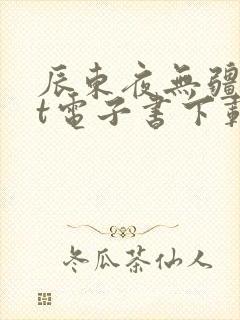 辰東夜無疆
t電子書下載
冬瓜茶仙人